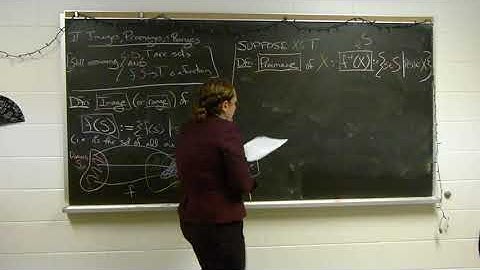 II Images, Preimages, Ranges
Still assuming S, T are sets
AND
f: S→T a function
Def: Image (or range) of
f(S) := { f(s) |
(i.e. its the set of all
f
SUPPOSE X ⊆ T
Def: Preimage of X: f⁻¹(X) := { s ∈ S | f(s) ∈ X }
⊆ S